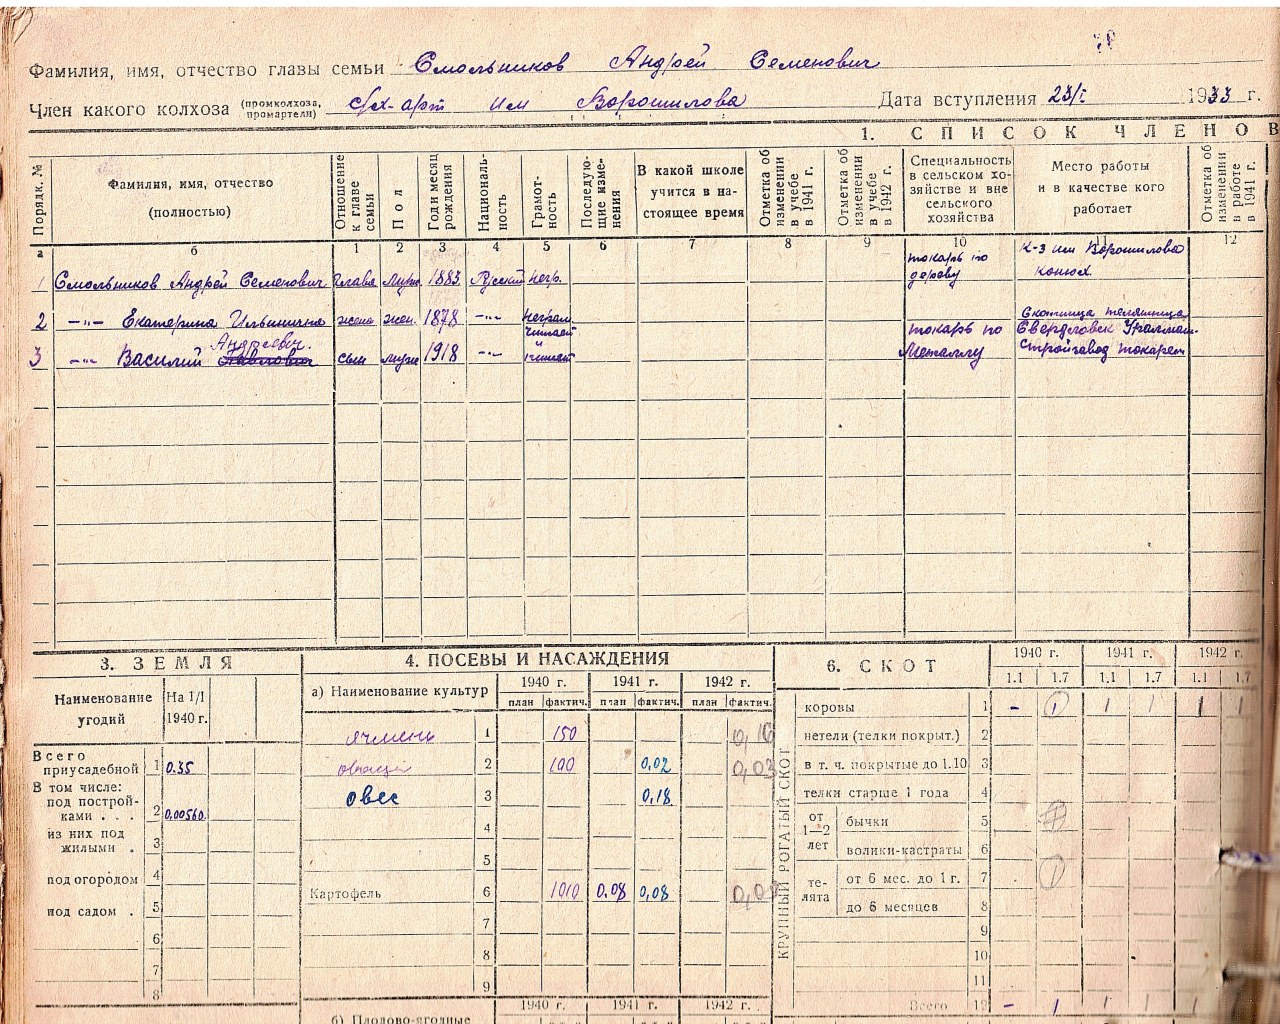 Фамилия, имя, отчество главы семьи Смольников Андрей Семенович
Член какого колхоза (промколхоза, промартели) с/х-арт им Ворошилова Дата вступления 23/I 1933 г.
1. СПИСОК ЧЛЕНОВ
Порядк. № Фамилия, имя, отчество (полностью) Отношение к главе семьи Пол Год и месяц рождения Националь-ность Грамот-ность Последую-щие изме-нения В какой школе учится в на-стоящее время Отметка об изменении в учебе в 1941 г. Отметка об изменении в учебе в 1942 г. Специальность в сельском хо-зяйстве и вне сельского хозяйства Место работы и в качестве кого работает Отметка об изменении в работе в 1941 г.
а б 1 2 3 4 5 6 7 8 9 10 11 12
1 Смольников Андрей Семенович глава муж 1883 Русский негр. токарь по дереву К-з им Ворошилова конюх
2 —"— Екатерина Ильинична жена жен. 1878 —"— неграм Скотница телятница
Андреевич.
3 —"— Василий Павлович сын муж 1918 —"— читает и пишет токарь по Металлу Свердловск Уралмаш-Стройзавод токарем
3. ЗЕМЛЯ
Наименование угодий На 1/I 1940 г.
Всего приусадебной 1 0.35
В том числе: под построй-ками . . . 2 0.00560.
из них под жилыми . 3
под огородом 4
под садом . 5
6
7
8
4. ПОСЕВЫ И НАСАЖДЕНИЯ
а) Наименование культур 1940 г. 1941 г. 1942 г.
план фактич. план фактич. план фактич.
ячмень 1 150
овощи 2 100 0,02 0,03
овес 3 0,18
4
5
Картофель 6 1010 0.08 0,08
7
8
9
1940 г. 1941 г. 1942 г.
б) Плодово-ягодные
6. СКОТ 1940 г. 1941 г. 1942 г.
1.1 1.7 1.1 1.7 1.1 1.7
КРУПНЫЙ РОГАТЫЙ СКОТ
коровы 1 - 1 1 1 1 1
нетели (телки покрыт.) 2
в т. ч. покрытые до 1.10 3
телки старше 1 года 4
от 1—2 лет бычки 5
волики-кастраты 6
те-лята от 6 мес. до 1 г. 7 1
до 6 месяцев 8
9
10
11
Всего 12 - 1 1 1 1 1